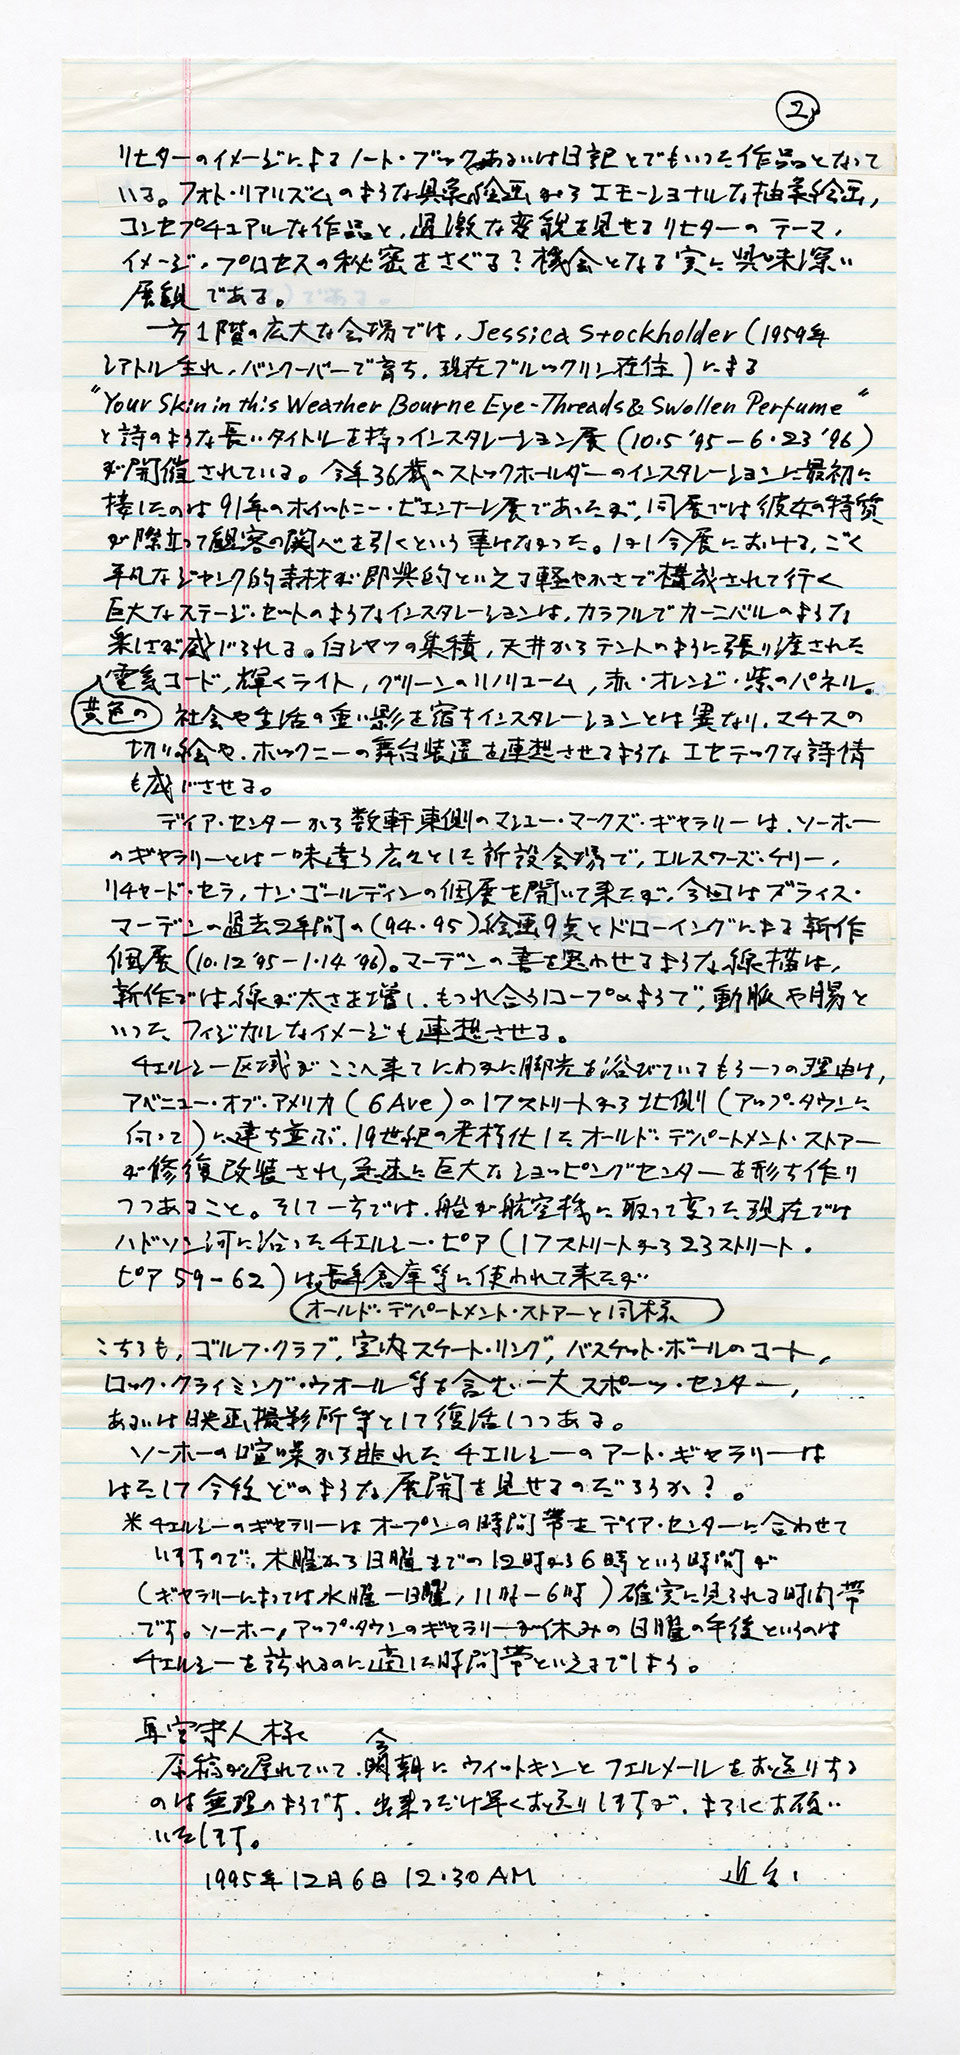 ②
リヒターのイメージによるノート・ブックあるいは日記とでもいった作品となって
いる。フォト・リアリズムのような具象絵画からエモーショナルな抽象絵画,
コンセプチュアルな作品と,過激な変貌を見せるリヒターのテーマ,
イメージ,プロセスの秘密をさぐる?機会となる実に興味深い
展観である。
一方1階の広大な会場では,Jessica Stockholder(1959年
シアトル生れ,バンクーバーで育ち,現在ブルックリン在住)による
"Your Skin in this Weather Bourne Eye-Threads & Swollen Perfume"
と詩のような長いタイトルを持つインスタレーション展(10.5'95-6.23'96)
が開催されている。今年36歳のストックホールダーのインスタレーションに最初に
接したのは91年のホイットニー・ビエンナーレ展であったが,同展では彼女の特質
が際立って観客の関心を引くという事はなかった。しかし今展における,ごく
平凡なジャンク的素材が即興的といえる軽やかさで構成されて行く
巨大なステージ・セットのようなインスタレーションは,カラフルでカーニバルのような
楽しさが感じられる。白シャツの集積,天井からテントのように張り渡された
電気コード,輝くライト,グリーンのリノリューム,赤・オレンジ・紫のパネル。
黄色の
社会や生活の重い影を宿すインスタレーションとは異なり,マチスの
切り絵や,ホックニーの舞台装置を連想させるようなエセテックな詩情
も感じさせる。
ディア・センターから数軒東側のマシュー・マークズ・ギャラリーは,ソーホー
のギャラリーとは一味違う広々とした新設会場で,エルスワーズ・ケリー,
リチャード・セラ,ナン・ゴールディンの個展を開いて来たが,今回はブライス・
マーデンの過去2年間の(94.95)絵画9点とドローイングによる新作
個展(10.12'95-1.14'96)。マーデンの書を思わせるような線描は,
新作では線が太さを増し,もつれ合うロープのようで,動脈や腸と
いった,フィジカルなイメージも連想させる。
チェルシー区域がここへ来てにわかに脚光を浴びているもう一つの理由は,
アベニュー・オブ・アメリカ(6Ave)の17ストリートから北側(アップ・タウンに
向って)に建ち並ぶ,19世紀の老朽化したオールド・デパートメント・ストアー
が修復改装され,急速に巨大なショッピングセンターを形ち作り
つつあること。そして一方では,船が航空機に取って変った現在では
ハドソン河に沿ったチェルシー・ピア(17ストリートから23ストリート.
ピア59-62)は長年倉庫等に使われて来たが
オールド・デパートメント・ストアーと同様
こちらも,ゴルフ・クラブ,室内スケート・リング,バスケット・ボールのコート,
ロック・クライミング・ウオール等を含む一大スポーツ・センター,
あるいは映画撮影所等として復活しつつある。
ソーホーの喧噪から逃れたチェルシーのアート・ギャラリーは
はたして今後どのような展開を見せるのだろうか?。
※チェルシーのギャラリーはオープンの時間帯をディア・センターに合わせて
いますので,木曜から日曜までの12時から6時という時間が
(ギャラリーによっては水曜一日曜,11時-6時)確実に見られる時間帯
です。ソーホー,アップ・タウンのギャラリーが休みの日曜の午後というのは
チェルシーを訪れるのに適した時間帯といえるでしょう。
守人様
原稿が遅れていて,今朝にウィットキンとフェルメールをお送りする
のは無理のようです,出来るだけ早くお送りしますが,よろしくお願い
いたします。
1995年12月6日 12.30AM